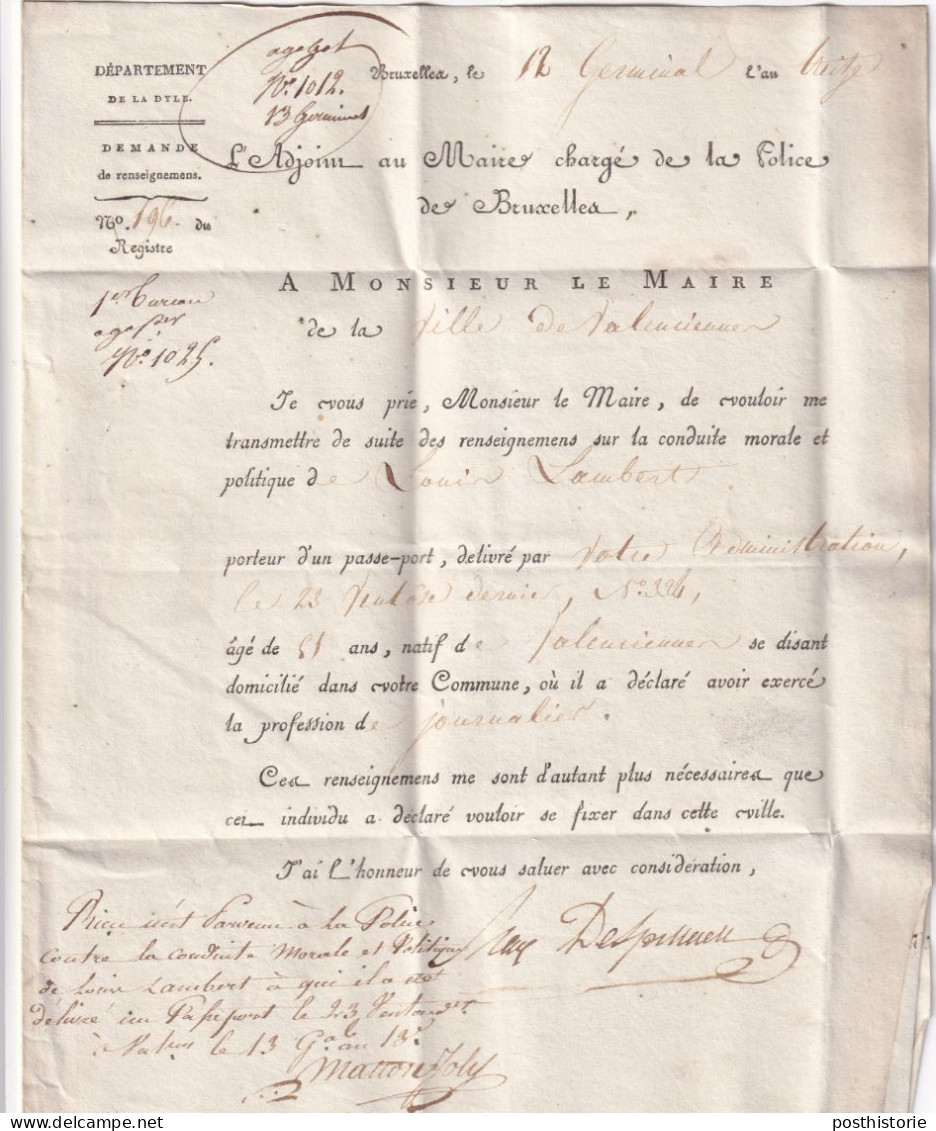 DÉPARTEMENT
DE LA DYLE.
DEMANDE
de renseignemens.
N.º 196. du
Registre
N.º 1012.
13 Germinal
Bruxelles, le 12 Germinal l'an treize
L'Adjoint au Maire chargé de la Police
de Bruxelles,
1er bureau
N.º 1025.
A MONSIEUR LE MAIRE
de la Ville de Valenciennes
Je vous prie, Monsieur le Maire, de vouloir me
transmettre de suite des renseignemens sur la conduite morale et
politique de Louis Lambert
porteur d'un passe-port, delivré par votre Administration,
le 23 Ventose dernier, N.º 334,
âgé de 51 ans, natif de Valenciennes se disant
domicilié dans votre Commune, où il a déclaré avoir exercé
la profession de journalier.
Ces renseignemens me sont d'autant plus nécessaires que
cet individu a déclaré vouloir se fixer dans cette ville.
J'ai l'honneur de vous saluer avec considération,
Rien n'est Parvenu à la Police
contre la conduite Morale et Politique
de Louis Lambert à qui il a été
délivré un Passeport le 23 Ventose
le 13 Gal an 13.
posthistorie